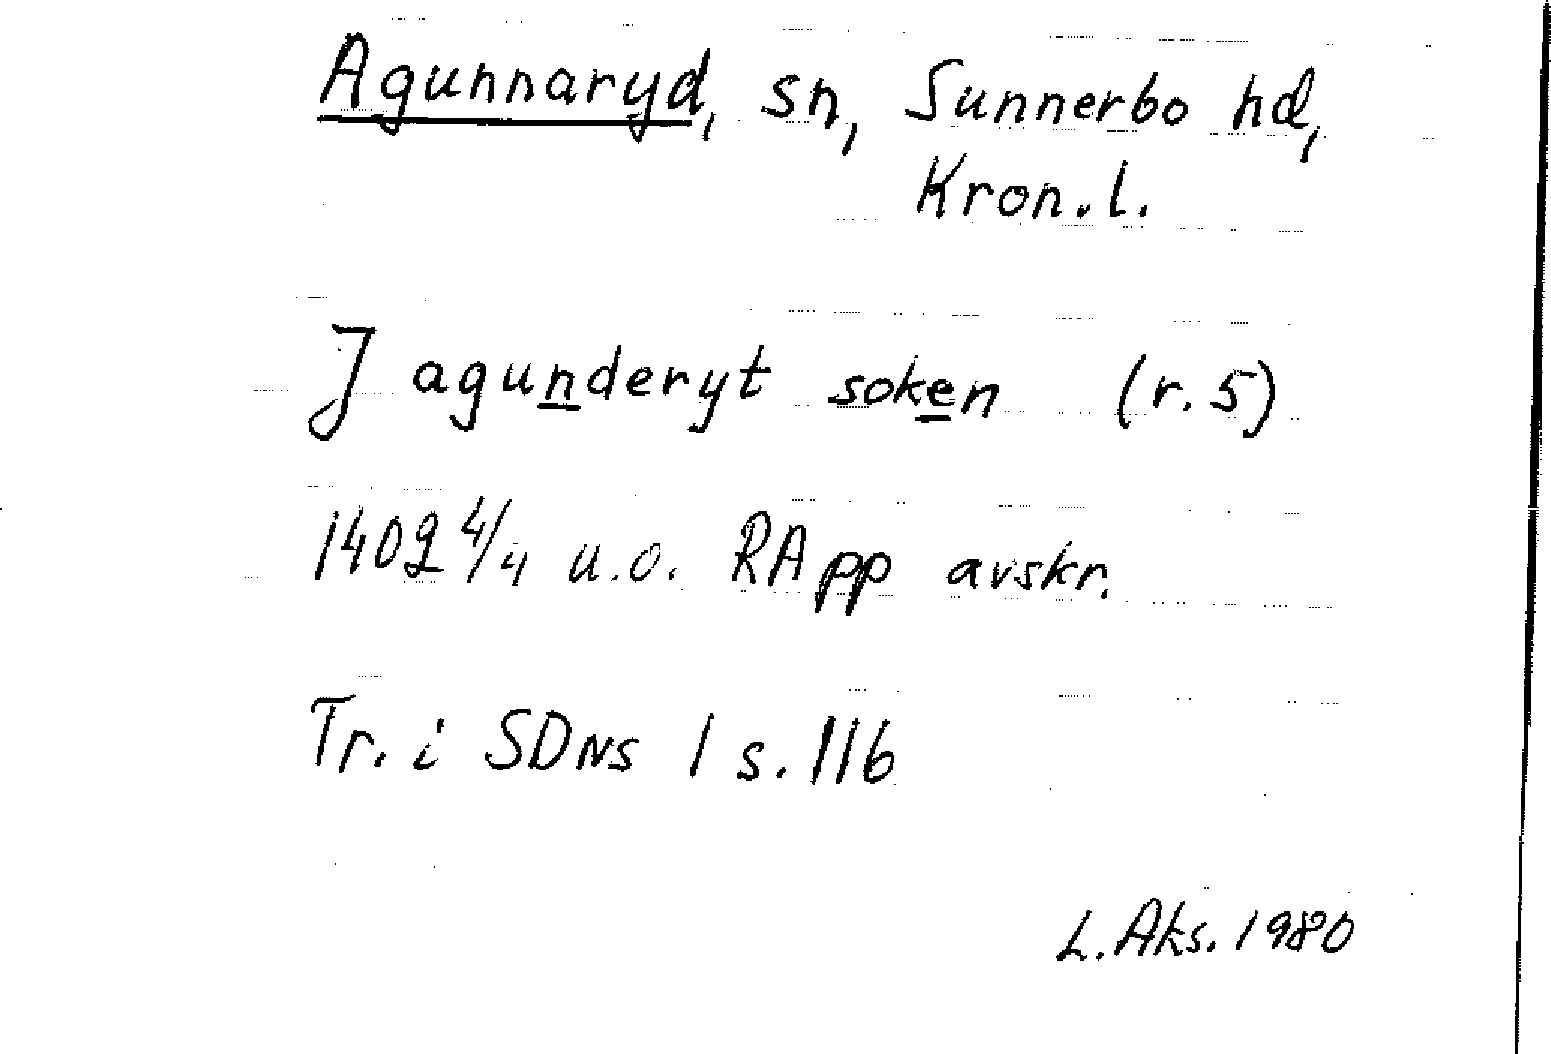 Agunnaryd, sn, Sunnerbo hd,
Kron.l.
J agunderyt soken (r. 5)
1402 4/4 u.o. RApp avskr.
Tr. i SDNS 1 s. 116
L. Aks. 1980